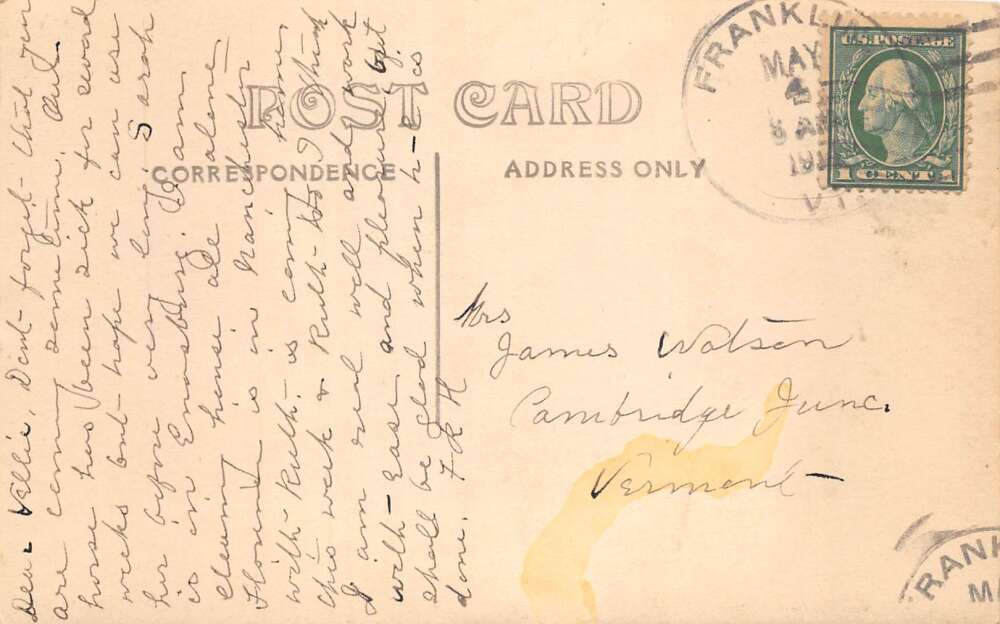 POST CARD
CORRESPONDENCE
ADDRESS ONLY
FRANKLIN
MAY
4
8 AM
191
VT.
U.S. POSTAGE
1 CENT 1
Dear Nellie, Dont forget that you
are coming sometime. Our
horse has been sick for several
weeks but hope we can use
her before very long. Sarah
is in Enosburg. So am
cleaning house all alone.
Flora is in Manchester
with Ruth. is coming home
this week & Ruth too I think
I am real well and work
with ease and pleasure but
shall be glad when h-c is
done. F R H
Mrs
James Watson
Cambridge Junc.
Vermont
FRANK
MA